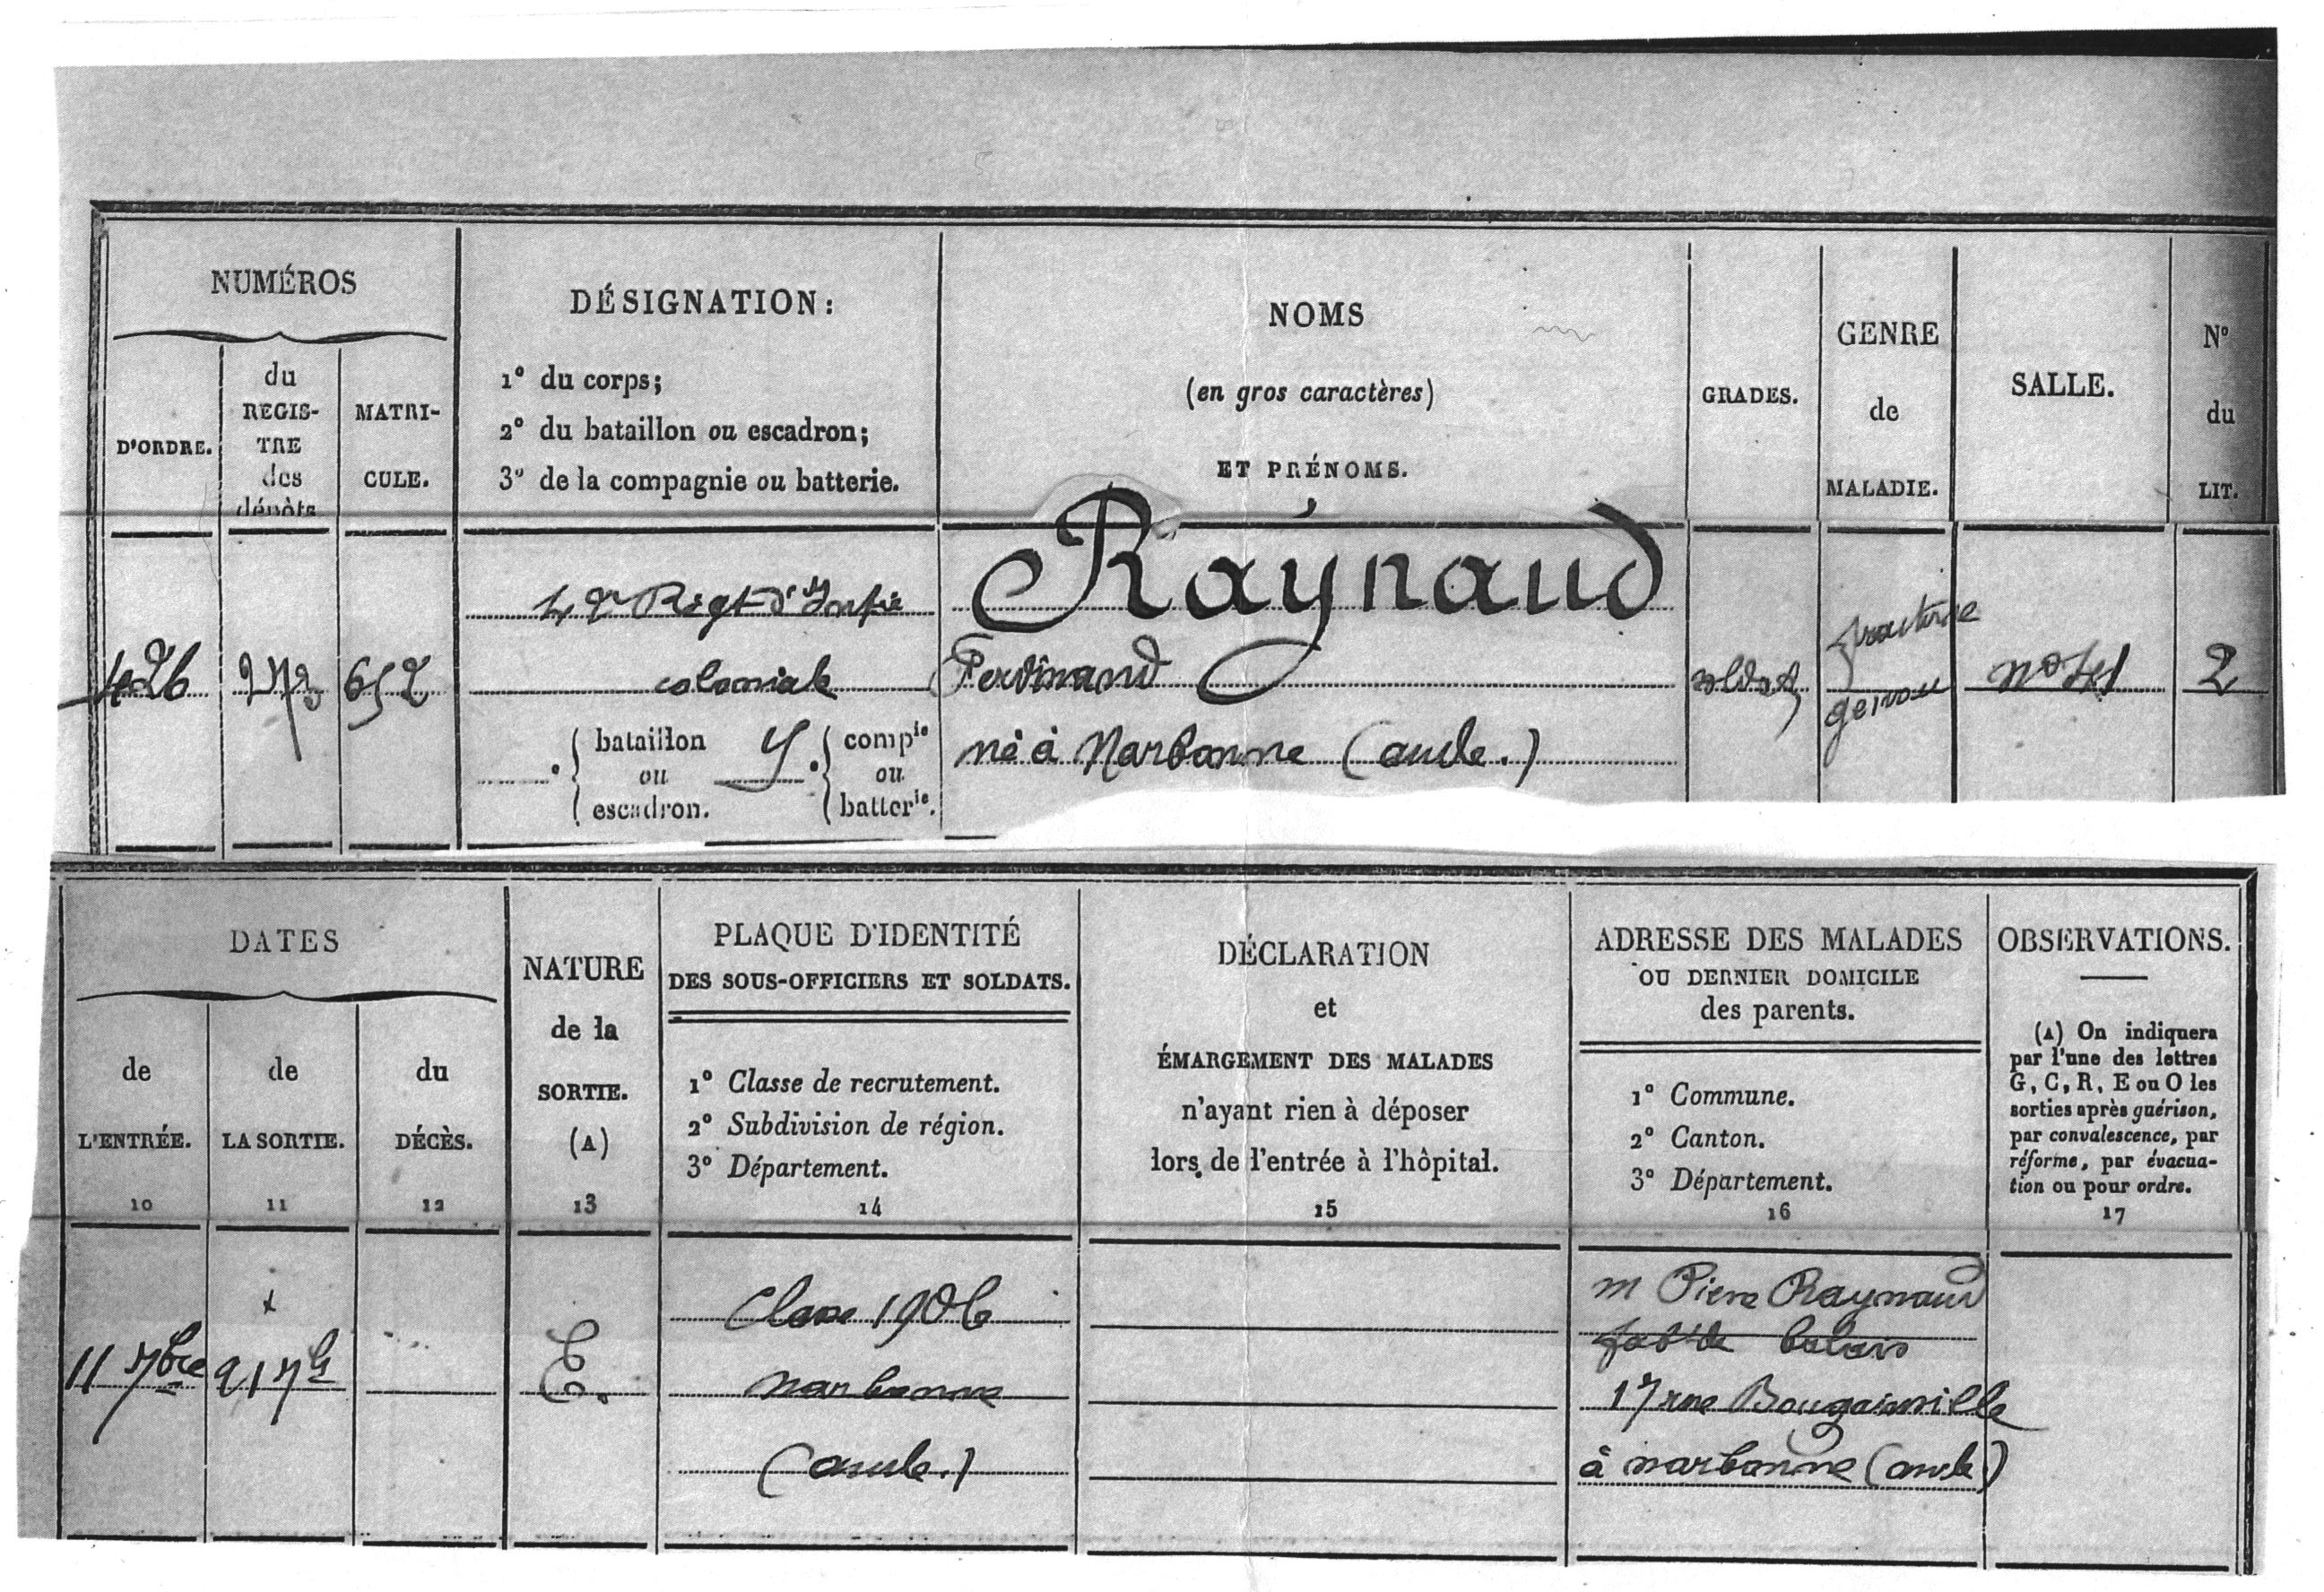 NUMÉROS
D'ORDRE.
du
REGIS-
TRE
des
dépôts
MATRI-
CULE.
DÉSIGNATION:
1° du corps;
2° du bataillon ou escadron;
3° de la compagnie ou batterie.
NOMS
(en gros caractères)
ET PRÉNOMS.
GRADES.
GENRE
de
MALADIE.
SALLE.
N°
du
LIT.
273
652
Régt d'Infie
coloniale
bataillon
ou
escadron.
compie
ou
batterie.
Raynaud
Ferdinand
né à Narbonne (aude.)
soldat
fracture
genou
2
DATES
de
L'ENTRÉE.
10
de
LA SORTIE.
11
du
DÉCÈS.
12
NATURE
de la
SORTIE.
(A)
13
PLAQUE D'IDENTITÉ
DES SOUS-OFFICIERS ET SOLDATS.
1° Classe de recrutement.
2° Subdivision de région.
3° Département.
14
DÉCLARATION
et
ÉMARGEMENT DES MALADES
n'ayant rien à déposer
lors de l'entrée à l'hôpital.
15
ADRESSE DES MALADES
OU DERNIER DOMICILE
des parents.
1° Commune.
2° Canton.
3° Département.
16
OBSERVATIONS.
(A) On indiquera
par l'une des lettres
G, C, R, E ou O les
sorties après guérison,
par convalescence, par
réforme, par évacua-
tion ou pour ordre.
17
11 7bre
21 7b
E.
Classe 1906
narbonne
(aude.)
m Pierre Raynaud
fabt de balais
17 rue Bougainville
à narbonne (aude)